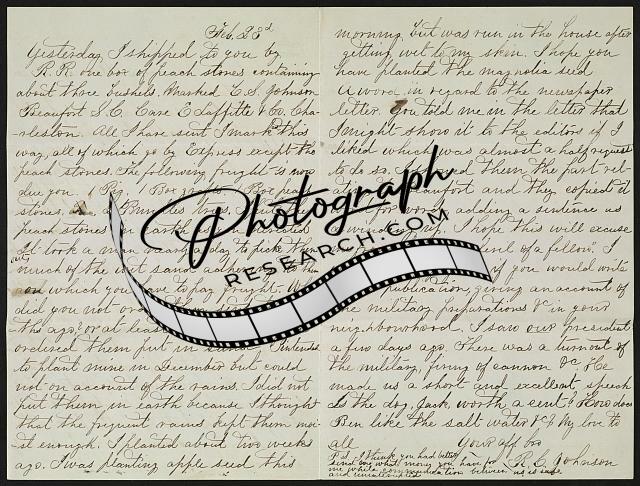 Feb. 23d
Yesterday I shipped to you by
R.R. one box of peach stones containing
about three bushels. Marked E. S. Johnson
Beaufort S.C. Care E Laffitte & Co. Cha-
rleston. All I have sent I mark this
way, all of which go by Express except the
peach stones. The following freight is now
due you 1 Box peach
stones,
peach stones in earth
It took a man nearly a day to pick them
much of the wet sand adhering
on which you have to pay freight.
did you not
the ago? or at least
ordered them put in sand. I intended
to plant mine in December but could
not on account of the rains. I did not
put them in earth because I thought
that the frequent rains kept them moi-
st enough. I planted about two weeks
ago. I was planting apple seed this
morning, but was run in the house after
getting wet to my skin. I hope you
have planted the magnolia seed
A word in regard to the newspaper
letter. You told me in the letter that
I might show it to the editors if I
liked which was almost a half request
to do so. I showed them the part rel-
Beaufort and they copied it
for word, adding a sentence as
I hope this will excuse
of a fellow. I
if you would write
publication, giving an account of
the military preparations &c in your
neighbourhood. I saw our president
a few days ago. There was a turnout of
the military, firing of cannon &c. He
made us a short and excellent speech
Is the dog, Jack, worth a cent? How does
Ben like the salt water &c? My love to
all Your aff bro
R. E. Johnson
P.S. I think you had better
send me what money you have for
me while communication between us is safe
and uninterrupted
Photograph
RESEARCH.COM